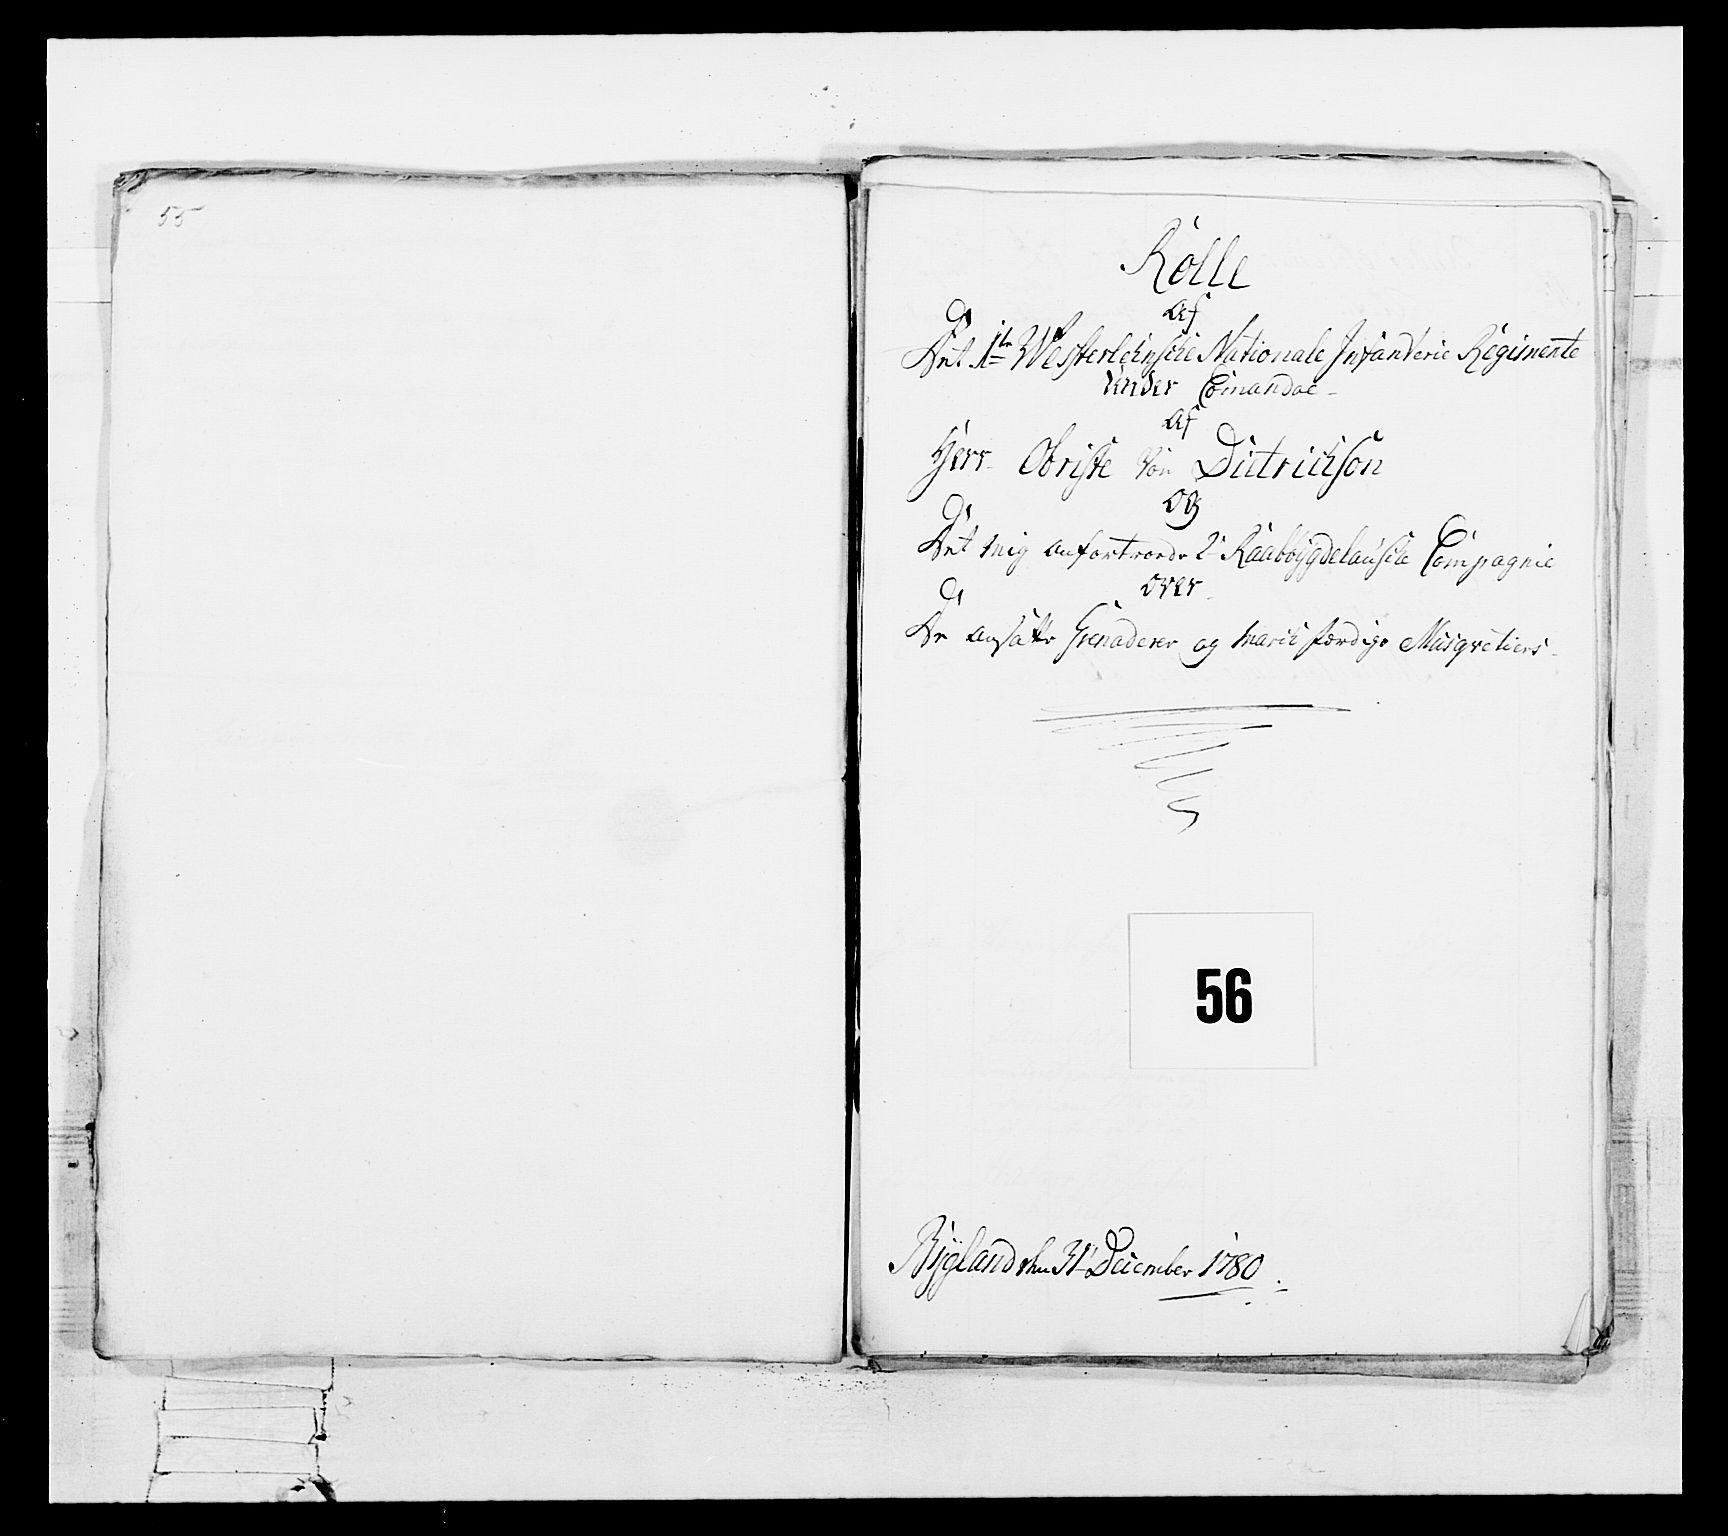 55
Rolle
Af
Det 1te Westerlehnske Nationale Infanterie Regimente
Under Comandoe
Af
Herr Obriste Von Dietrichson
Og
Det mig anfortroede 2det Raabbygdelauske Compagnie
over
De ansatte Grenaderer og marsch færdige Musqvetiers
56
Bygland den 31te December 1780